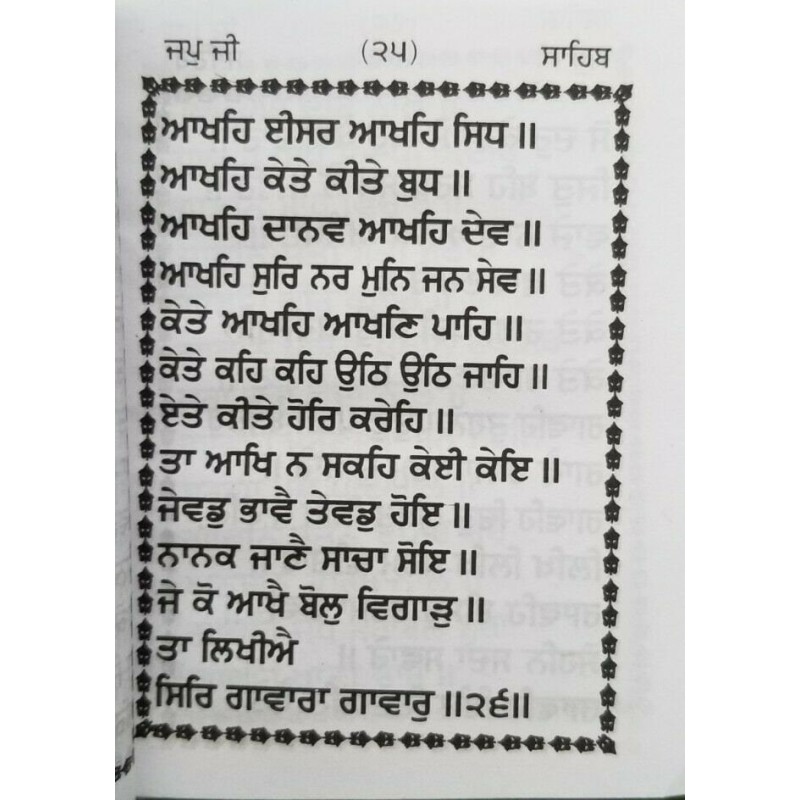 ਜਪੁ ਜੀ (੨੫) ਸਾਹਿਬ
ਆਖਹਿ ਈਸਰ ਆਖਹਿ ਸਿਧ ॥
ਆਖਹਿ ਕੇਤੇ ਕੀਤੇ ਬੁਧ ॥
ਆਖਹਿ ਦਾਨਵ ਆਖਹਿ ਦੇਵ ॥
ਆਖਹਿ ਸੁਰਿ ਨਰ ਮੁਨਿ ਜਨ ਸੇਵ ॥
ਕੇਤੇ ਆਖਹਿ ਆਖਣਿ ਪਾਹਿ ॥
ਕੇਤੇ ਕਹਿ ਕਹਿ ਉਠਿ ਉਠਿ ਜਾਹਿ ॥
ਏਤੇ ਕੀਤੇ ਹੋਰਿ ਕਰੇਹਿ ॥
ਤਾ ਆਖਿ ਨ ਸਕਹਿ ਕੇਈ ਕੇਇ ॥
ਜੇਵਡੁ ਭਾਵੈ ਤੇਵਡੁ ਹੋਇ ॥
ਨਾਨਕ ਜਾਣੈ ਸਾਚਾ ਸੋਇ ॥
ਜੇ ਕੋ ਆਖੈ ਬੋਲੁ ਵਿਗਾੜੁ ॥
ਤਾ ਲਿਖੀਐ
ਸਿਰਿ ਗਾਵਾਰਾ ਗਾਵਾਰੁ ॥੨੬॥